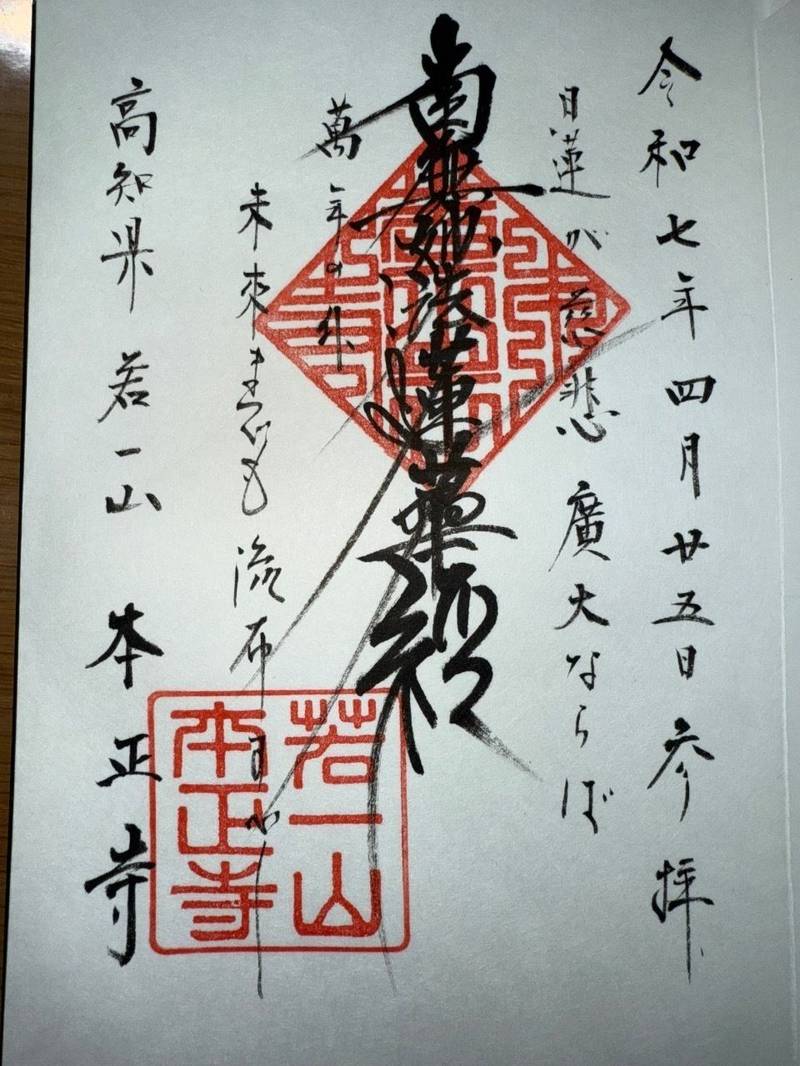 令和七年四月廿五日参拝
日蓮が慈悲廣大ならば
南無妙法蓮華経
萬年の外
未來までも流布
高知県 若一山 本正寺
若一山
本正寺